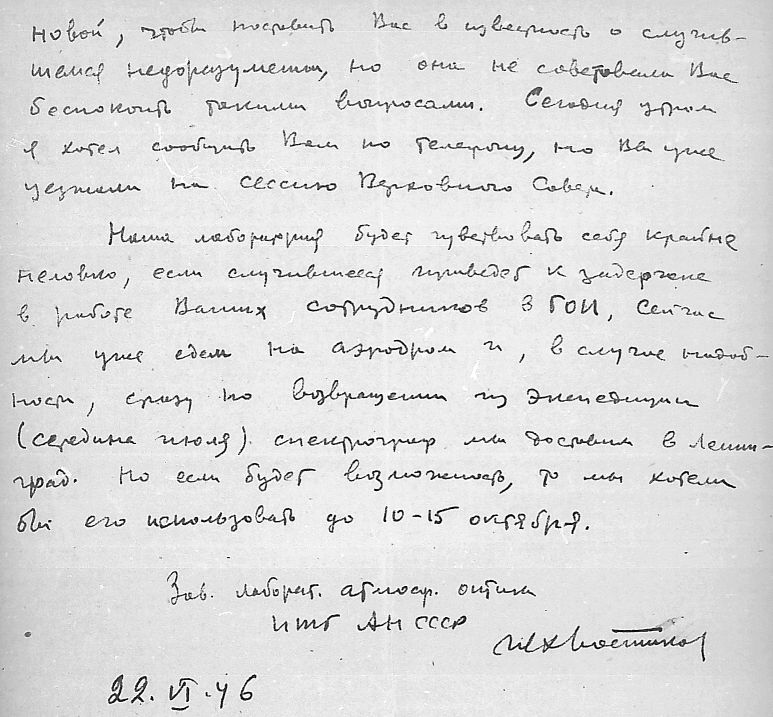 новой, чтобы поставить Вас в известность о случив-
шемся недоразумении, но она не советовала Вас
беспокоить такими вопросами. Сегодня утром
я хотел сообщить Вам по телефону, но Вы уже
уезжали на сессию Верховного Совета.
Наша лаборатория будет чувствовать себя крайне
неловко, если случившееся приведет к задержке
в работе Ваших сотрудников в ГОИ, сейчас
мы уже едем на аэродром и, в случае надоб-
ности, сразу по возвращении из экспедиции
(середина июля) спектрограф мы доставим в Ленин-
град. Но если будет возможность, то мы хотели
бы его использовать до 10-15 октября.
Зав. лаборат. атмосф. оптики
ИТГ АН СССР
И Хвостиков
22. VI. 46